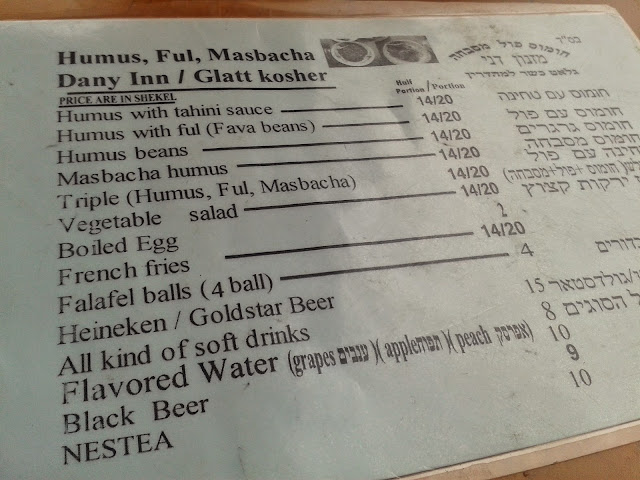 בס"ד
Humus, Ful, Masbacha חומוס פול מסבחה
Dany Inn / Glatt kosher מזנון דני
PRICE ARE IN SHEKEL Half Portion / Portion גלאט כשר למהדרין
Humus with tahini sauce 14/20 חומוס עם טחינה
Humus with ful (Fava beans) 14/20 חומוס עם פול
Humus beans 14/20 חומוס גרגרים
Masbacha humus 14/20 חומוס מסבחה
עם פול
Triple (Humus, Ful, Masbacha) 14/20 חומוס+פול+מסבחה)
Vegetable salad 14/20 ירקות קצוץ
Boiled Egg 2
French fries 14/20
Falafel balls (4 ball) 4
Heineken / Goldstar Beer 15 /גולדסטאר
All kind of soft drinks 8 הסוגים
Flavored Water (grapes ענבים)( appleתפוח)( peach אפרסק) 10
Black Beer 9
NESTEA 10